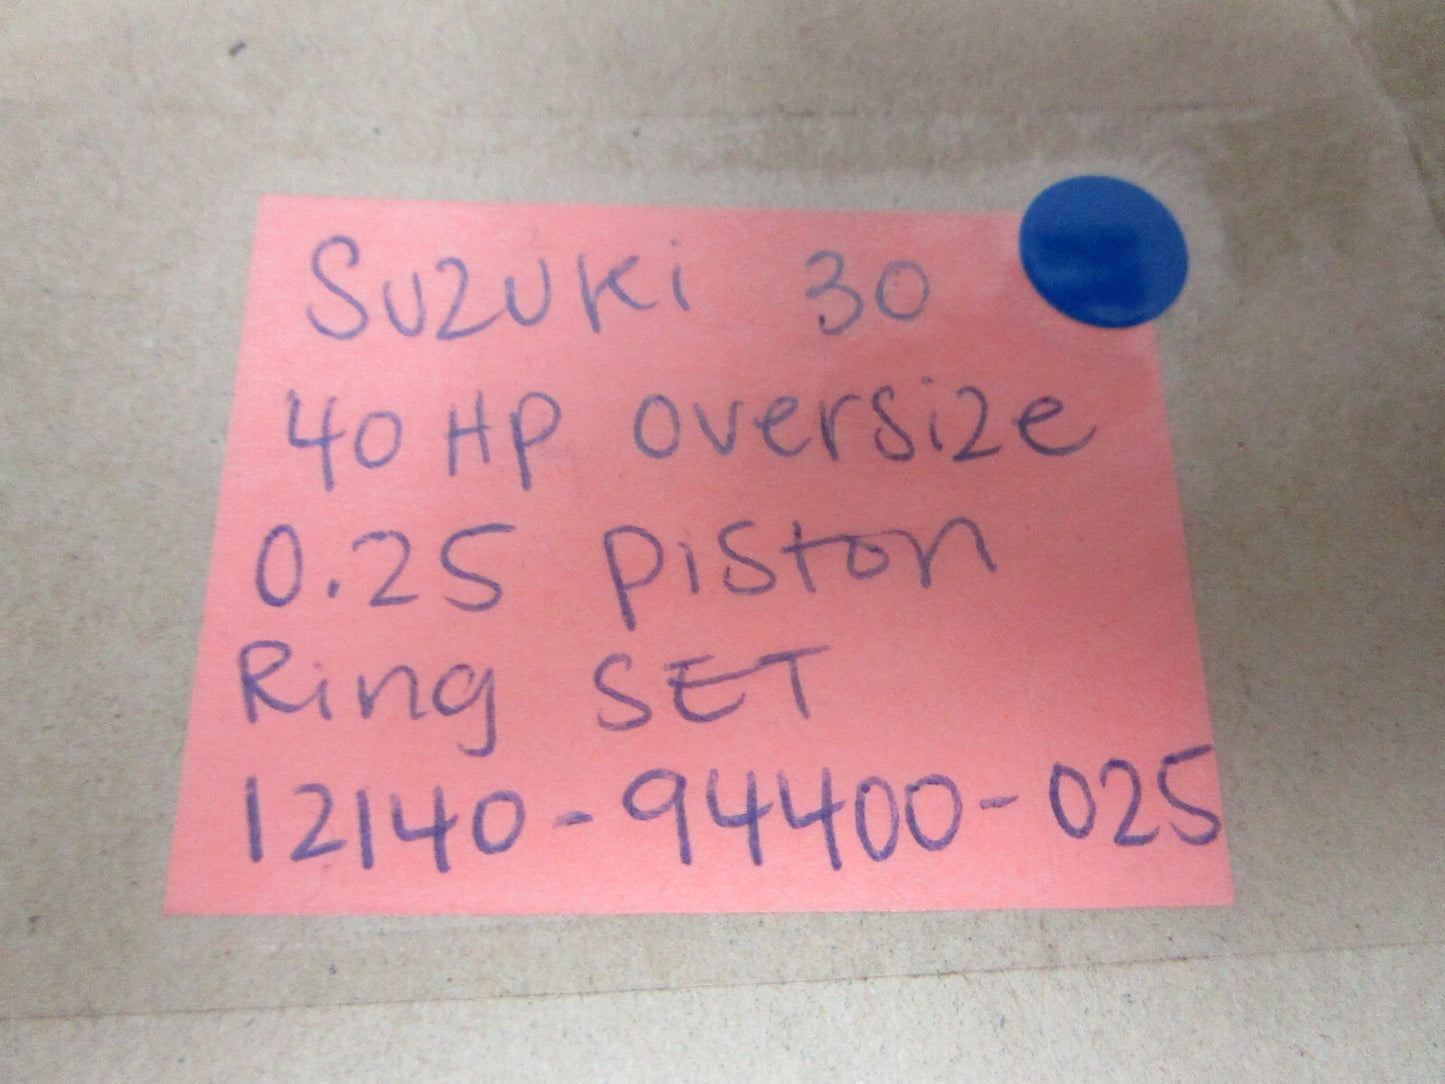 Suzuki 30
40 HP oversize
0.25 piston
Ring SET
12140-94400-025